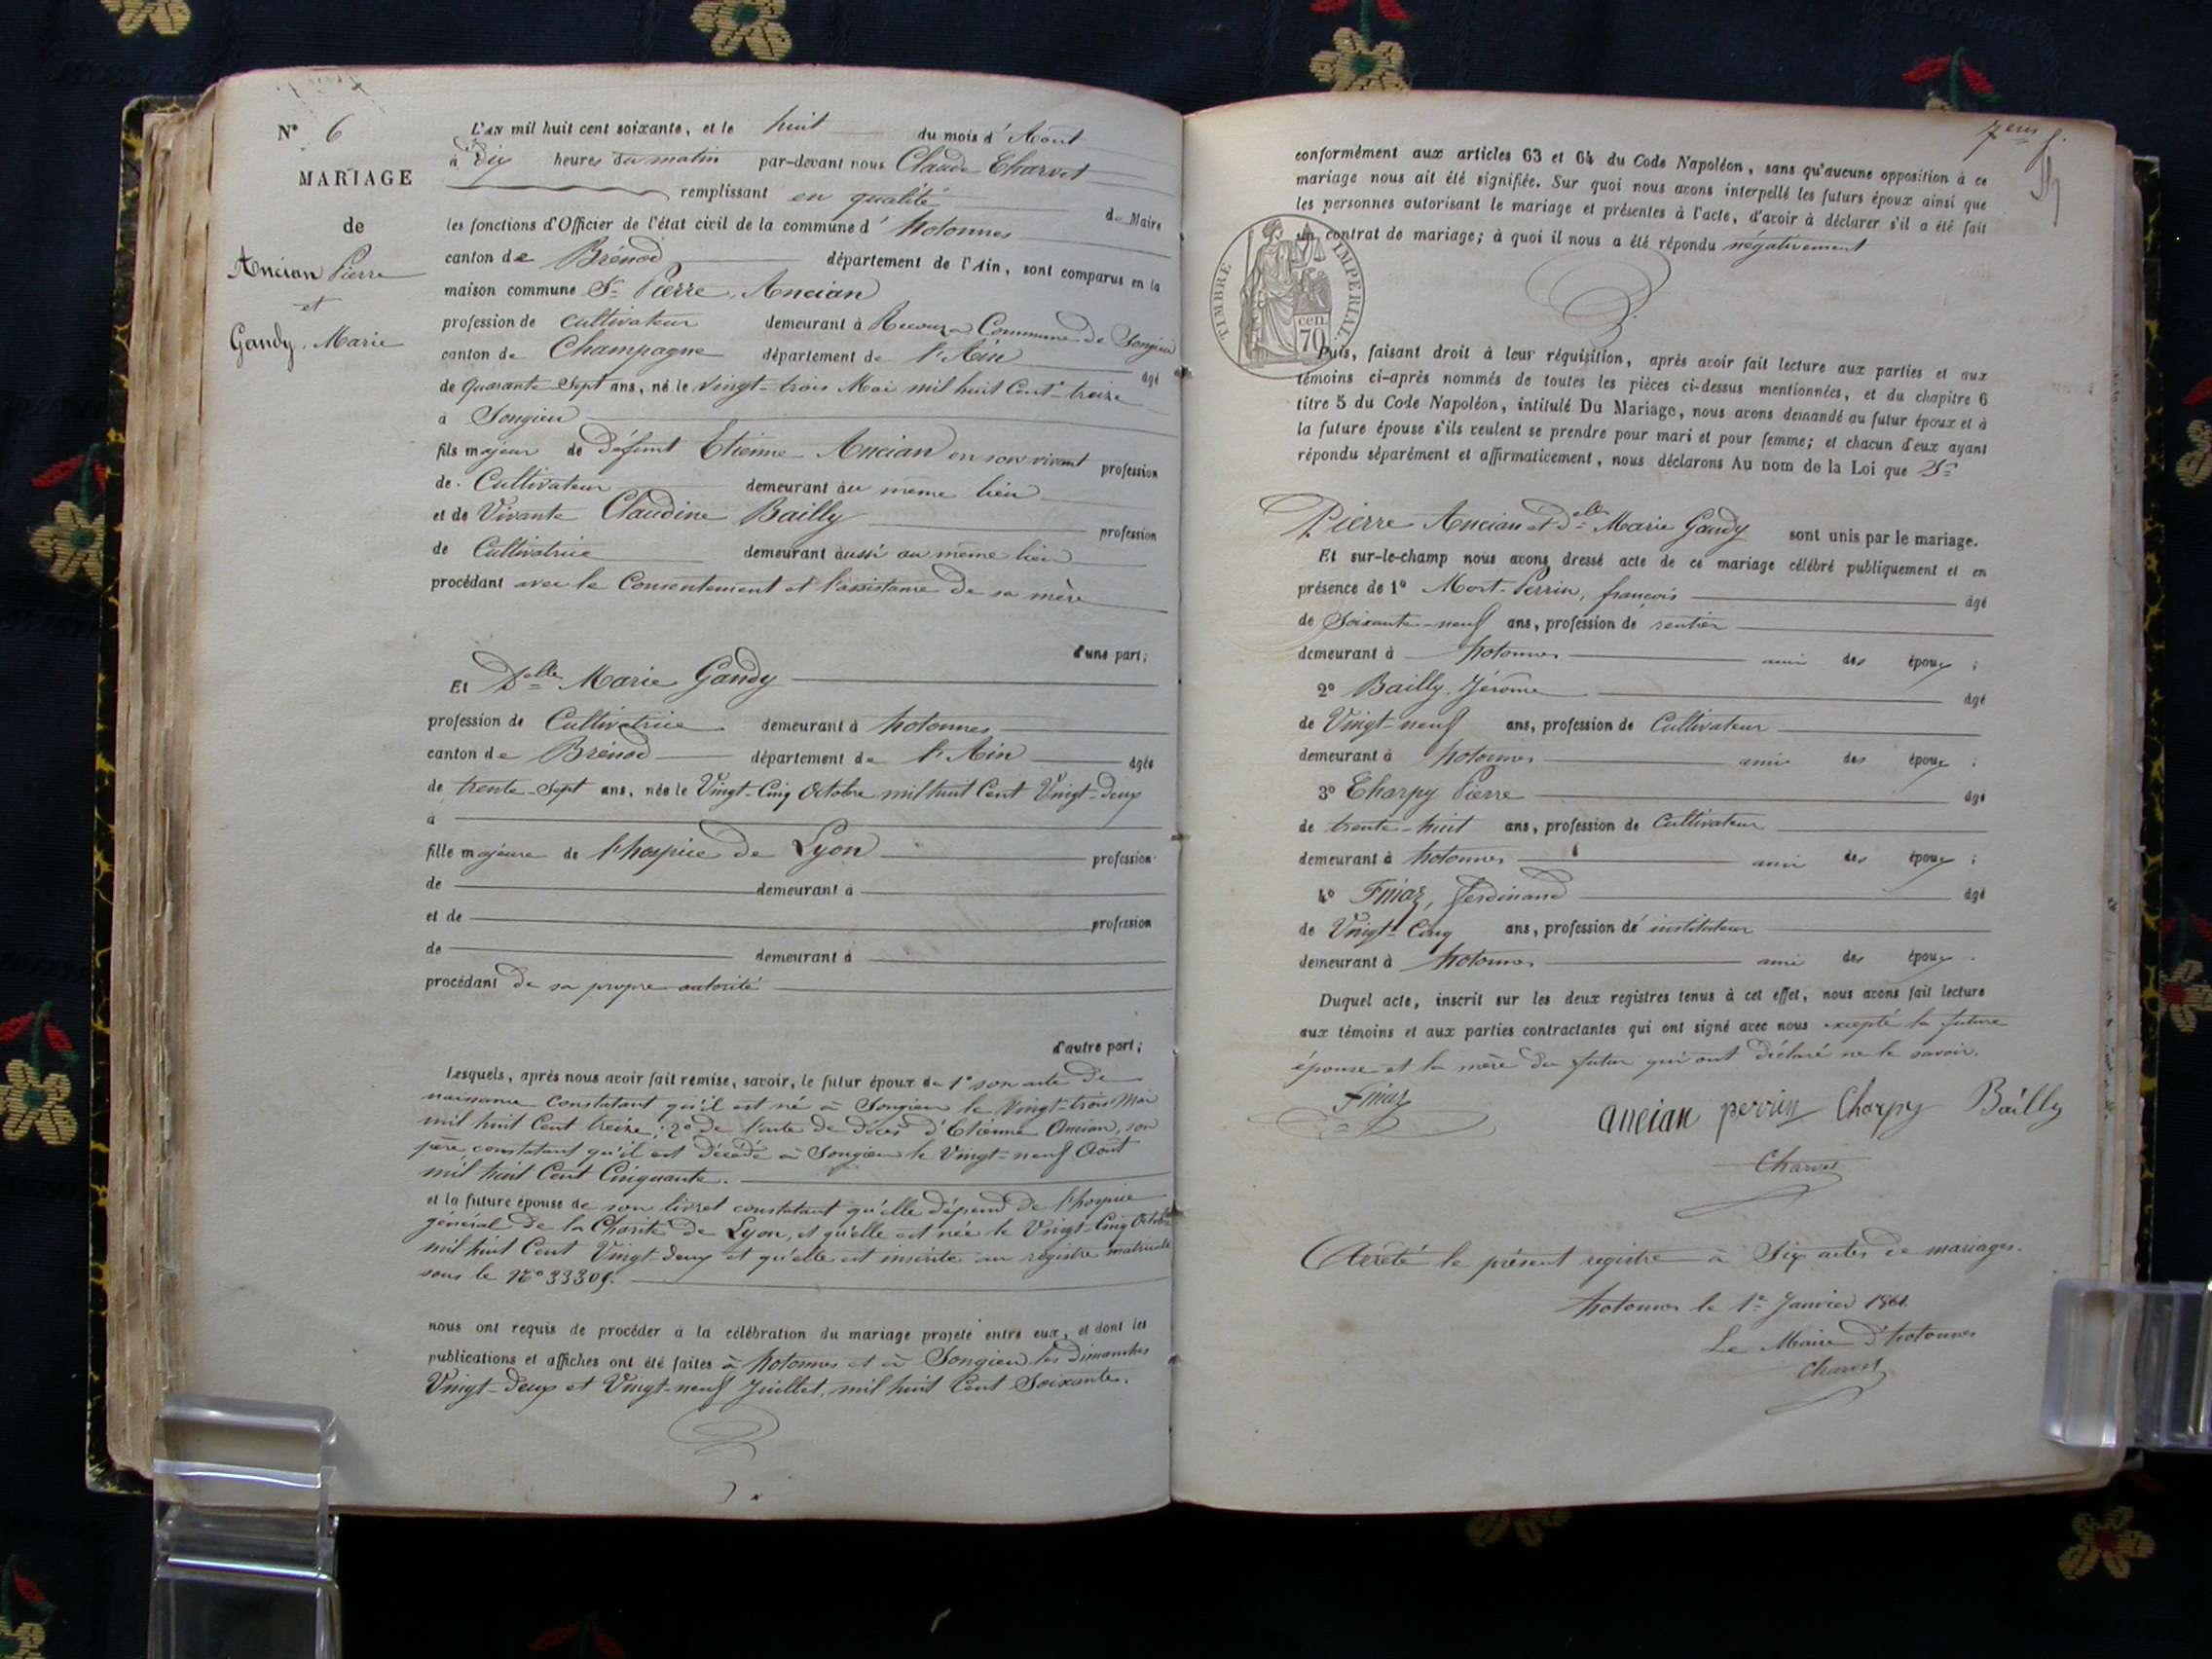 N° 6
MARIAGE
de
Ancian Pierre
et
Gandy, Marie
L'an mil huit cent soixante, et le huit du mois d'Août
à dix heures du matin par-devant nous Claude Charvet
remplissant en qualité de Maire
les fonctions d'Officier de l'état civil de la commune d'hotonnes
canton de Brénod département de l'Ain, sont comparus en la
maison commune Sr Pierre, Ancian
profession de cultivateur demeurant à Commune de Songieu
canton de Champagne département de l'Ain âgé
de quarante Sept ans, né le vingt-trois Mai mil huit Cent treize
à Songieu
fils majeur de Défunt Etienne Ancian en son vivant profession
de Cultivateur demeurant au même lieu
et de Vivante Claudine Bailly profession
de Cultivatrice demeurant aussi au même lieu
procédant avec le Consentement et l'assistance de sa mère
d'une part;
Et Delle Marie Gandy
profession de Cultivatrice demeurant à hotonnes
canton de Brénod département de l'Ain âgée
de trente-Sept ans, née le Vingt-Cinq Octobre mil huit Cent Vingt-deux
à
fille majeure de l'hospice de Lyon profession
de demeurant à
et de profession
de demeurant à
procédant de sa propre autorité
d'autre part;
Lesquels, après nous avoir fait remise, savoir, le futur époux de 1° son acte de
naissance constatant qu'il est né à Songieu le Vingt-trois Mai
mil huit Cent treize; 2° de l'acte de décès d'Etienne Ancian, son
père, constatant qu'il est décédé à Songieu le Vingt-neuf Août
mil huit Cent Cinquante.
et la future épouse de son livret constatant qu'elle dépend de l'hospice
général de la Charité de Lyon, et qu'elle est née le Vingt-Cinq Octobre
mil huit Cent Vingt-deux et qu'elle est inscrite au registre matricule
sous le N°
nous ont requis de procéder à la célébration du mariage projeté entre eux, et dont les
publications et affiches ont été faites à hotonnes et à Songieu les dimanches
Vingt-deux et Vingt-neuf Juillet, mil huit Cent Soixante.
conformément aux articles 63 et 64 du Code Napoléon, sans qu'aucune opposition à ce
mariage nous ait été signifiée. Sur quoi nous avons interpellé les futurs époux ainsi que
les personnes autorisant le mariage et présentes à l'acte, d'avoir à déclarer s'il a été fait
un contrat de mariage; à quoi il nous a été répondu négativement
TIMBRE IMPÉRIAL.
70 cen.
Puis, faisant droit à leur réquisition, après avoir fait lecture aux parties et aux
témoins ci-après nommés de toutes les pièces ci-dessus mentionnées, et du chapitre 6
titre 5 du Code Napoléon, intitulé Du Mariage, nous avons demandé au futur époux et à
la future épouse s'ils veulent se prendre pour mari et pour femme; et chacun d'eux ayant
répondu séparément et affirmativement, nous déclarons Au nom de la Loi que Sr
Pierre Ancian et Delle Marie Gandy sont unis par le mariage.
Et sur-le-champ nous avons dressé acte de ce mariage célébré publiquement et en
présence de 1° Mort-Perrin, françois âgé
de Soixante-neuf ans, profession de rentier
demeurant à hotonnes ami des époux ;
2° Bailly, Jérôme âgé
de Vingt-neuf ans, profession de Cultivateur
demeurant à hotonnes ami des époux ;
3° Charpy Pierre âgé
de trente-huit ans, profession de Cultivateur
demeurant à hotonnes ami des époux ;
4° Finaz, ferdinand âgé
de Vingt-Cinq ans, profession d'instituteur
demeurant à hotonnes ami des époux .
Duquel acte, inscrit sur les deux registres tenus à cet effet, nous avons fait lecture
aux témoins et aux parties contractantes qui ont signé avec nous excepté la future
épouse et la mère du futur qui ont déclaré ne le savoir.
Finaz
ancian perrin Charpy Bailly
Charvet
Arrêté le présent registre à Six actes de mariages.
hotonnes le 1er Janvier 1861.
Le Maire d'hotonnes
Charvet